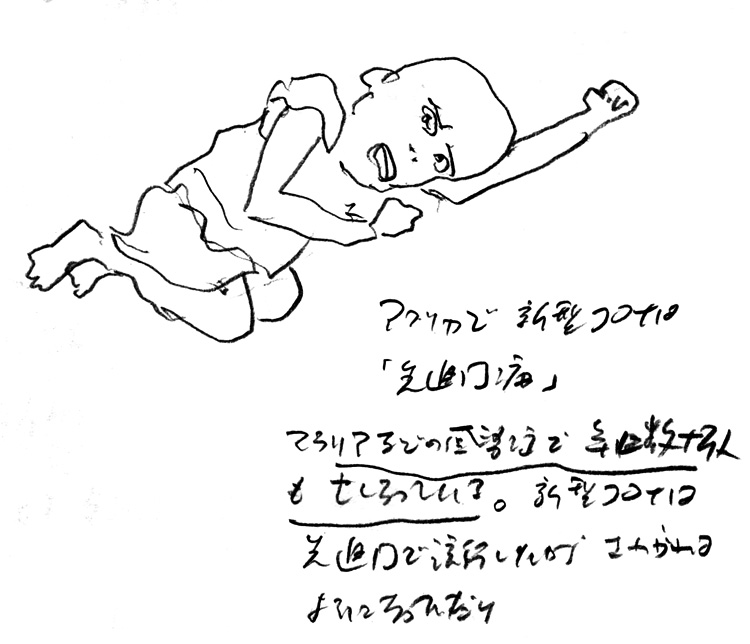 アフリカで 新型コロナは
「先進国病」
マラリアなどの感染症で 毎日数十万人
も 亡くなっている。新型コロナは
先進国で流行したから さわがれる
ようになっただけ